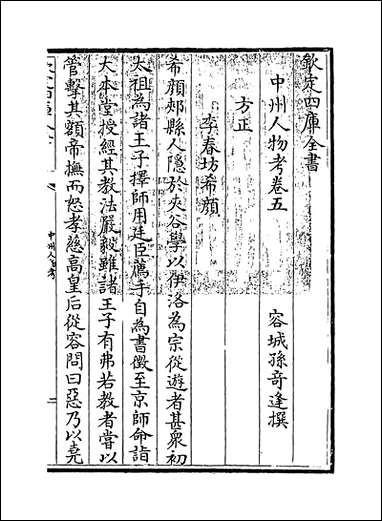 欽定四庫全書
中州人物考卷五
容城孫奇逢撰
方正
李春坊希顔
希顔郟縣人隱於夾谷學以伊洛為宗從遊者甚衆初
太祖為諸王子擇師用廷臣薦手自為書徵至京師命詣
大本堂授經其教法嚴毅雖諸王子有弗若教者嘗以
管擊其額帝撫而怒孝慈高皇后從容問曰惡乃以堯
中州人物考